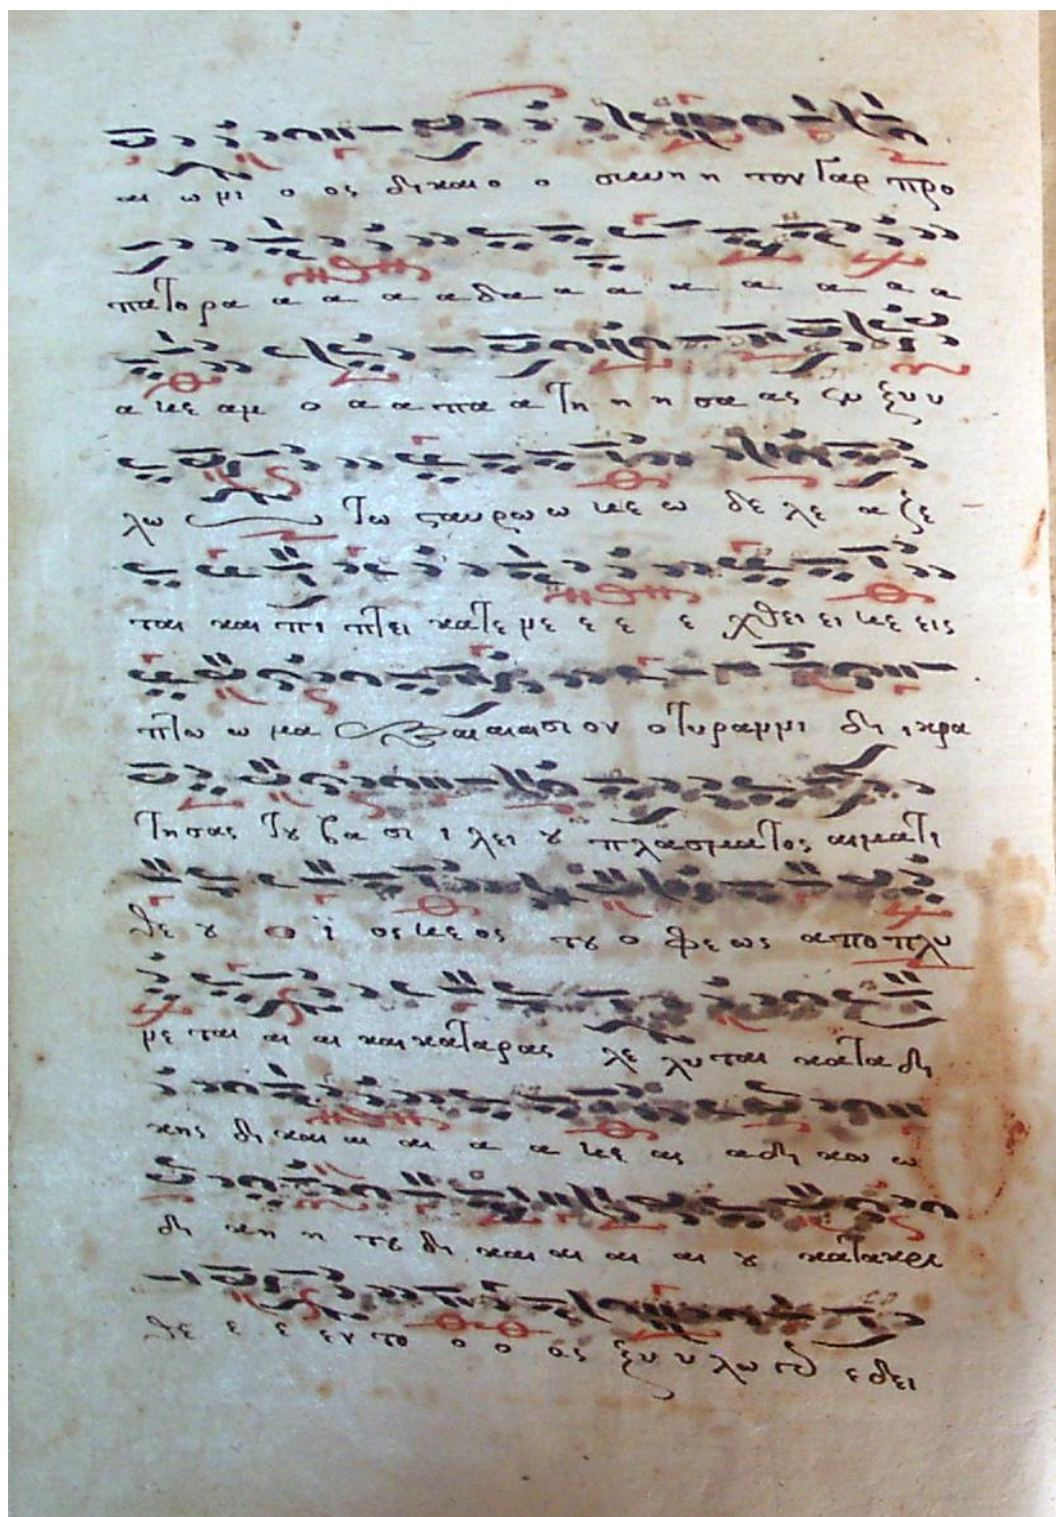 αι ω νι ο ος δι και ο ο συνη η τον γαρ προ
πατο ρα α α α α δα α α α α α α α
α κε αμ ο α α πα α τη η η σα ας ξυ υ
λω τω σταυρω ω κε ω δε λε α ζε
ται και πι πτει κατε νε ε ε ε χθει ει κε εις
πτω ω μα αι αι αισι ον ο τυραννι δι ι κρα
τησας του βα σι ι λει ου πλασματος αιματι
θε ου ο ι ος κε ος του ο φε ως αποπλυ
νε ται αι αι και καταρας λε λυται καταδι
κης δι και αι αι α α κε ας αδι κου ω
δι κη η του δι και αι αι αι ου κατακρι
θε ε ε εν το ο ο ος ξυ υ λω γαρ εδει